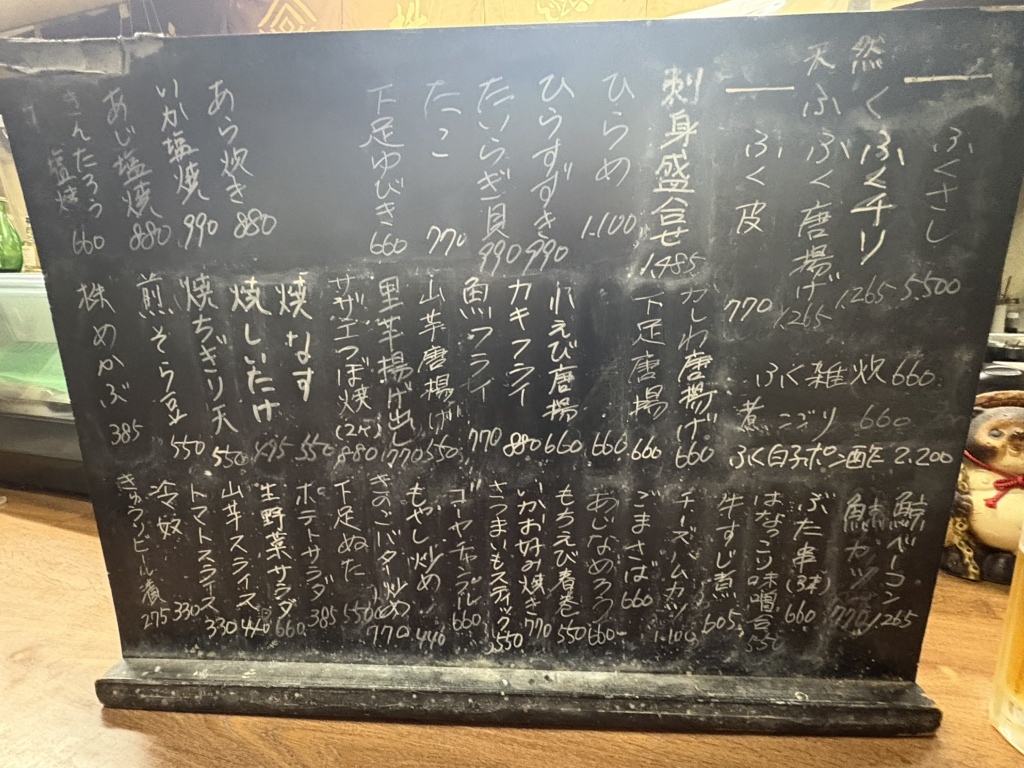 天然ふく
ふくさし 5,500
ふくチリ 1,265
ふく唐揚げ 1,265
ふく皮 770
ふく雑炊 660
煮こごり 660
ふく白子ポン酢 2,200
刺身盛合せ 1,485
ひらめ 1,100
ひらすずき 990
たいらぎ貝 990
たこ 770
下足ゆびき 660
あら炊き 880
いか塩焼 990
あじ塩焼 880
きんたろう塩焼 660
かしわ唐揚げ 660
下足唐揚 660
小えび唐揚 660
カキフライ 880
魚フライ 770
山芋唐揚げ 550
里芋揚げ出し 770
サザエつぼ焼(2ケ) 880
焼なす 550
焼しいたけ 495
焼ちぎり天 550
煎そら豆 550
株めかぶ 385
鯨ベーコン 1,265
鯨カツ 770
ぶた串(3本) 660
はなっこり味噌合 550
牛すじ煮 605
チーズハムカツ 1,100
ごまさば 660
あじなめろう 660
もちえび春巻 550
いかお好み焼き 770
さつまいもスティック 550
ゴーヤチャンプル 660
もやし炒め 440
きのこバター炒め 770
下足ぬた 550
ポテトサラダ 385
生野菜サラダ 660
山芋スライス 440
トマトスライス 330
冷奴 330
きゅうりビール漬 275